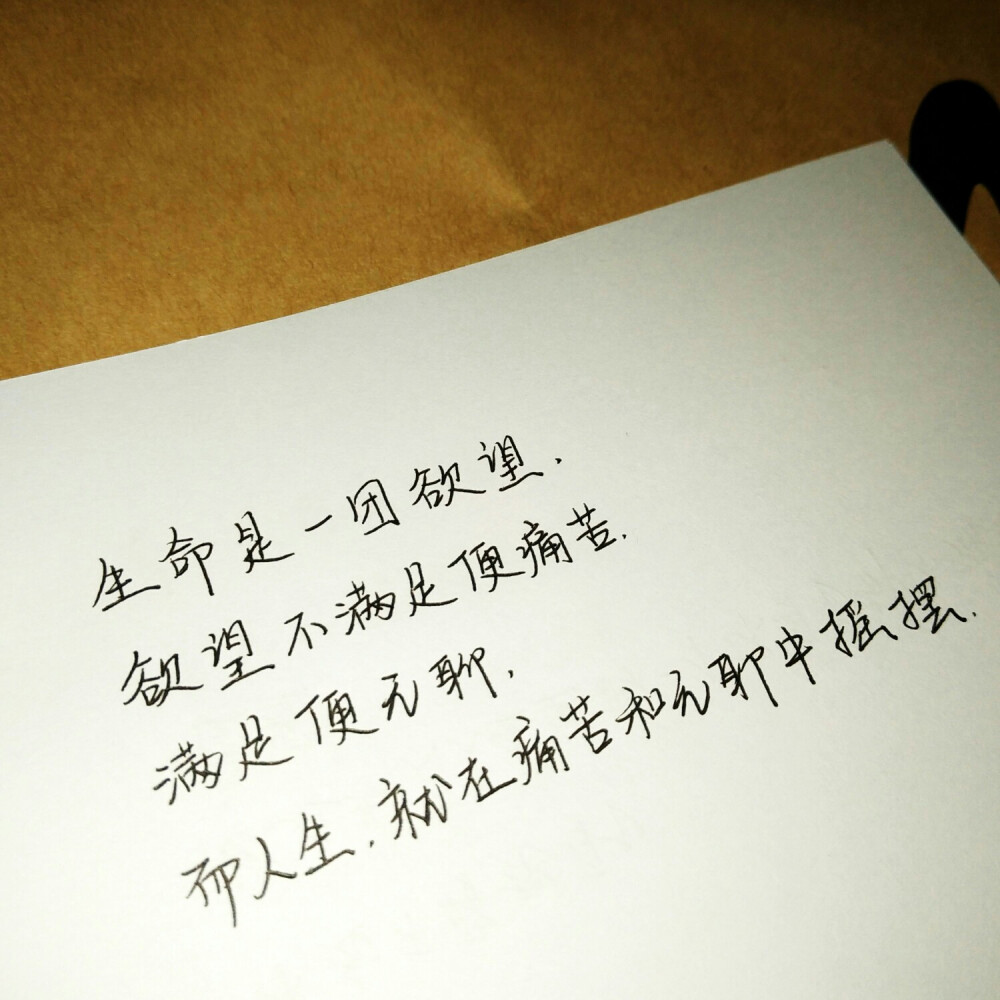 生命是一团欲望.
欲望不满足便痛苦.
满足便无聊,
而人生.就在痛苦和无聊中摇摆.